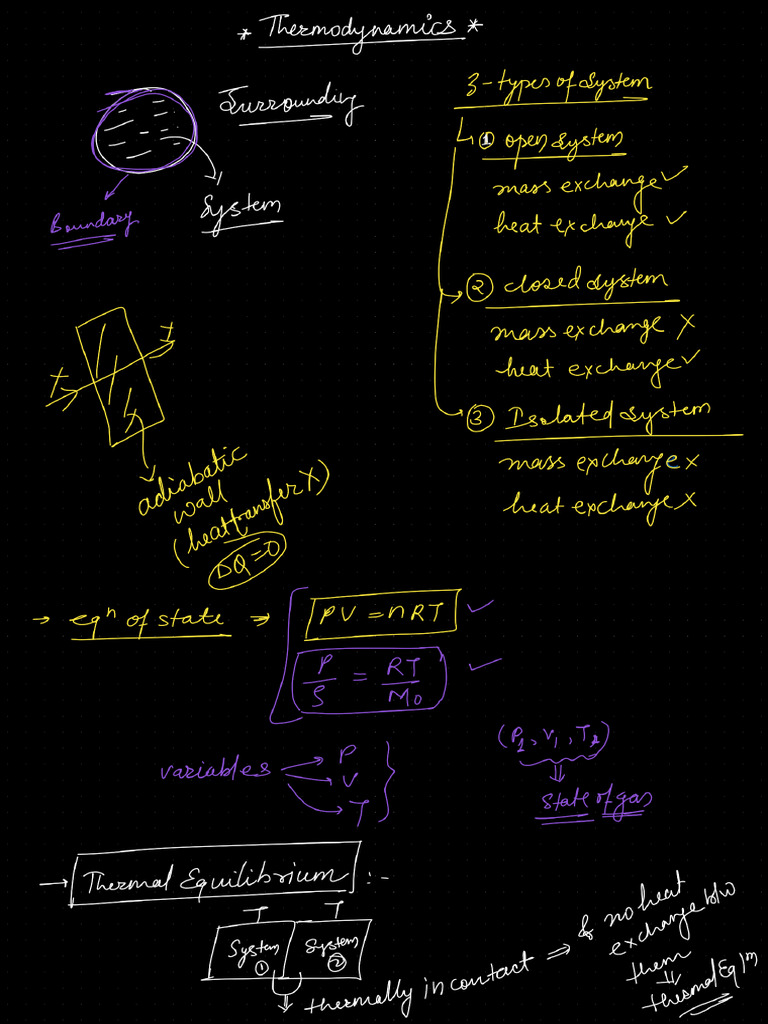 * Thermodynamics *
Surrounding
System
Boundary
3-types of System
① open System
mass exchange ✓
heat exchange ✓
② closed System
mass exchange X
heat exchange ✓
③ Isolated System
mass exchange x
heat exchange X
adiabatic
wall
(heat transfer X)
ΔQ=0
→ eqⁿ of state → PV = nRT ✓
P/ρ = RT/M₀ ✓
variables → P
→ V
→ T
(P₁, V₁, T₁)
⇓
State of gas
→ Thermal Equilibrium :-
T T
System ① System ②
⇓ thermally in contact ⇒ & no heat
exchange b/w
them
⇓
thermal Eq|ᵐ